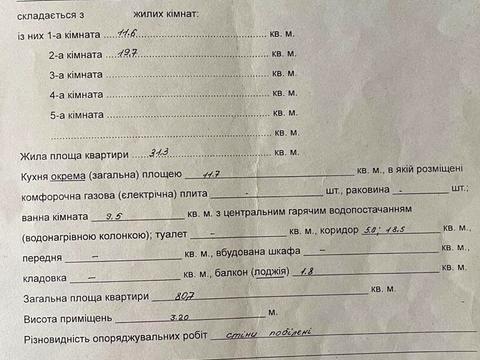 складається з жилих кімнат:
із них 1-а кімната 11.6 кв. м.
2-а кімната 19.7 кв. м.
3-а кімната кв. м.
4-а кімната кв. м.
5-а кімната кв. м.
кв. м.
Жила площа квартири 31.3 кв. м.
Кухня окрема (загальна) площею 11.7 кв. м., в якій розміщені
комфорочна газова (єлектрічна) плита - шт., раковина - шт.;
ванна кімната 9.5 кв. м. з центральним гарячим водопостачанням
(водонагрівною колонкою); туалет – кв. м., коридор 5.0; 18.5
передня – кв. м., вбудована шкафа – кв. м.
кладовка – кв. м., балкон (лоджія) 1.8
Загальна площа квартири 80,7 кв. м.
Висота приміщень 3.20 м.
Різновидність опоряджувальних робіт стіни побілені